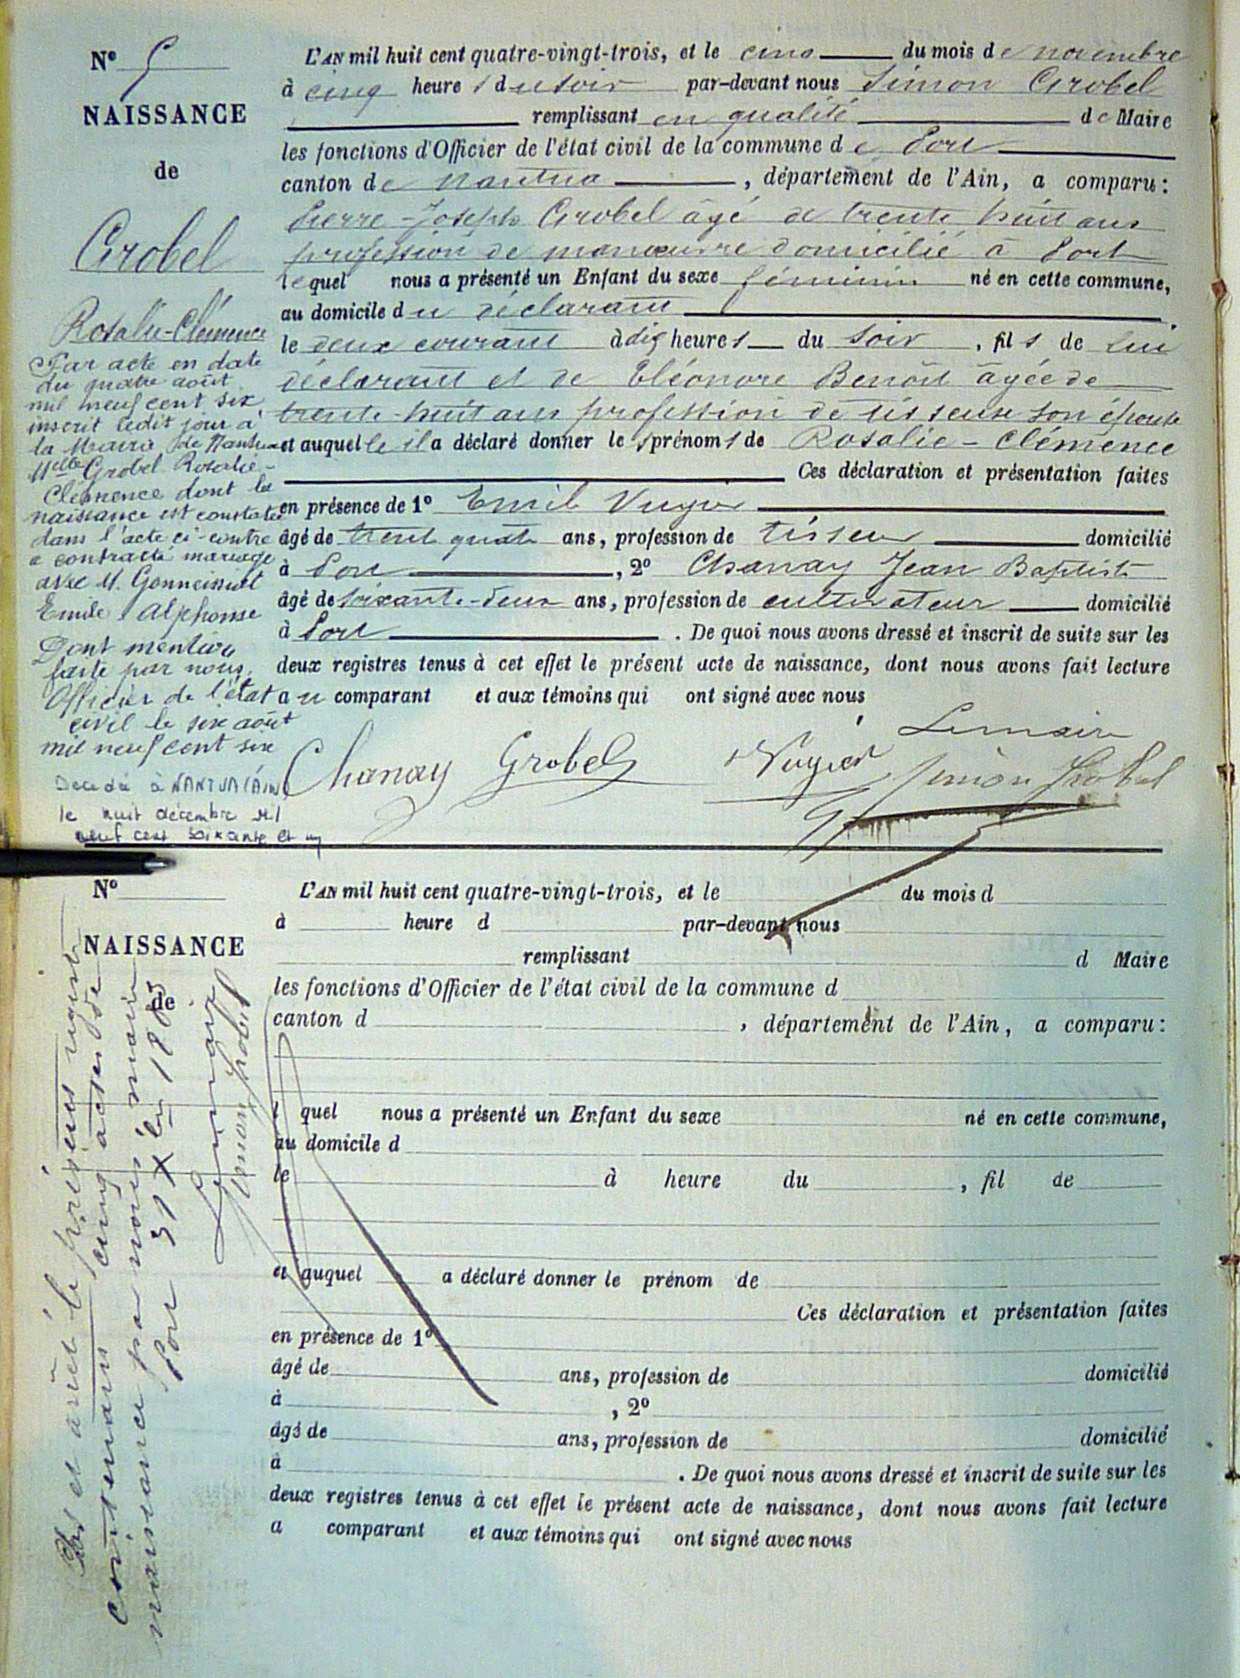 N° 5
NAISSANCE
de
Grobel
Rosalie-Clémence
Par acte en date
du quatre août
mil neuf cent six
inscrit ledit jour à
la Mairie de Nantua
Melle Grobel Rosalie-
Clémence dont la
naissance est constatée
dans l'acte ci-contre
a contracté mariage
avec M.
Emile Alphonse
Dont mention
faite par nous,
Officier de l'état
civil le six août
mil neuf cent six
Décédée à NANTUA (AIN)
le huit décembre Mil
neuf cent soixante et un
L'AN mil huit cent quatre-vingt-trois, et le cinq du mois de novembre
à cinq heures du soir par-devant nous Simon Grobel
remplissant en qualité de Maire
les fonctions d'Officier de l'état civil de la commune de Port
canton de Nantua, département de l'Ain, a comparu:
Pierre-Joseph Grobel âgé de trente huit ans
profession de manœuvre domicilié à Port
lequel nous a présenté un Enfant du sexe féminin né en cette commune,
au domicile du déclarant
le deux courant à dix heures du soir, fils de lui
déclarant et de Eléonore Benoît âgée de
trente-huit ans profession de tisseuse son épouse
et auquelle il a déclaré donner les prénoms de Rosalie-Clémence
Ces déclaration et présentation faites
en présence de 1° Emil Vuyier
âgé de trent quatr ans, profession de tisseur domicilié
à Port, 2° Chanay Jean Baptiste
âgé de soixante-deux ans, profession de cultivateur domicilié
à Port. De quoi nous avons dressé et inscrit de suite sur les
deux registres tenus à cet effet le présent acte de naissance, dont nous avons fait lecture
au comparant et aux témoins qui ont signé avec nous
Le maire
Chanay Grobel Vuyier Simon Grobel
N°
NAISSANCE
de
L'AN mil huit cent quatre-vingt-trois, et le du mois d
à heure d par-devant nous
remplissant d Maire
les fonctions d'Officier de l'état civil de la commune d
canton d , département de l'Ain, a comparu:
l quel nous a présenté un Enfant du sexe né en cette commune,
au domicile d
le à heure du , fil de
et auquel a déclaré donner le prénom de
Ces déclaration et présentation faites
en présence de 1°
âgé de ans, profession de domicilié
à , 2°
âgé de ans, profession de domicilié
à . De quoi nous avons dressé et inscrit de suite sur les
deux registres tenus à cet effet le présent acte de naissance, dont nous avons fait lecture
a comparant et aux témoins qui ont signé avec nous
Clos et arrêté le présent registre
contenant cinq actes de
naissance par nous maire
Port 31 Xbre 1883
Le maire
Simon Grobel